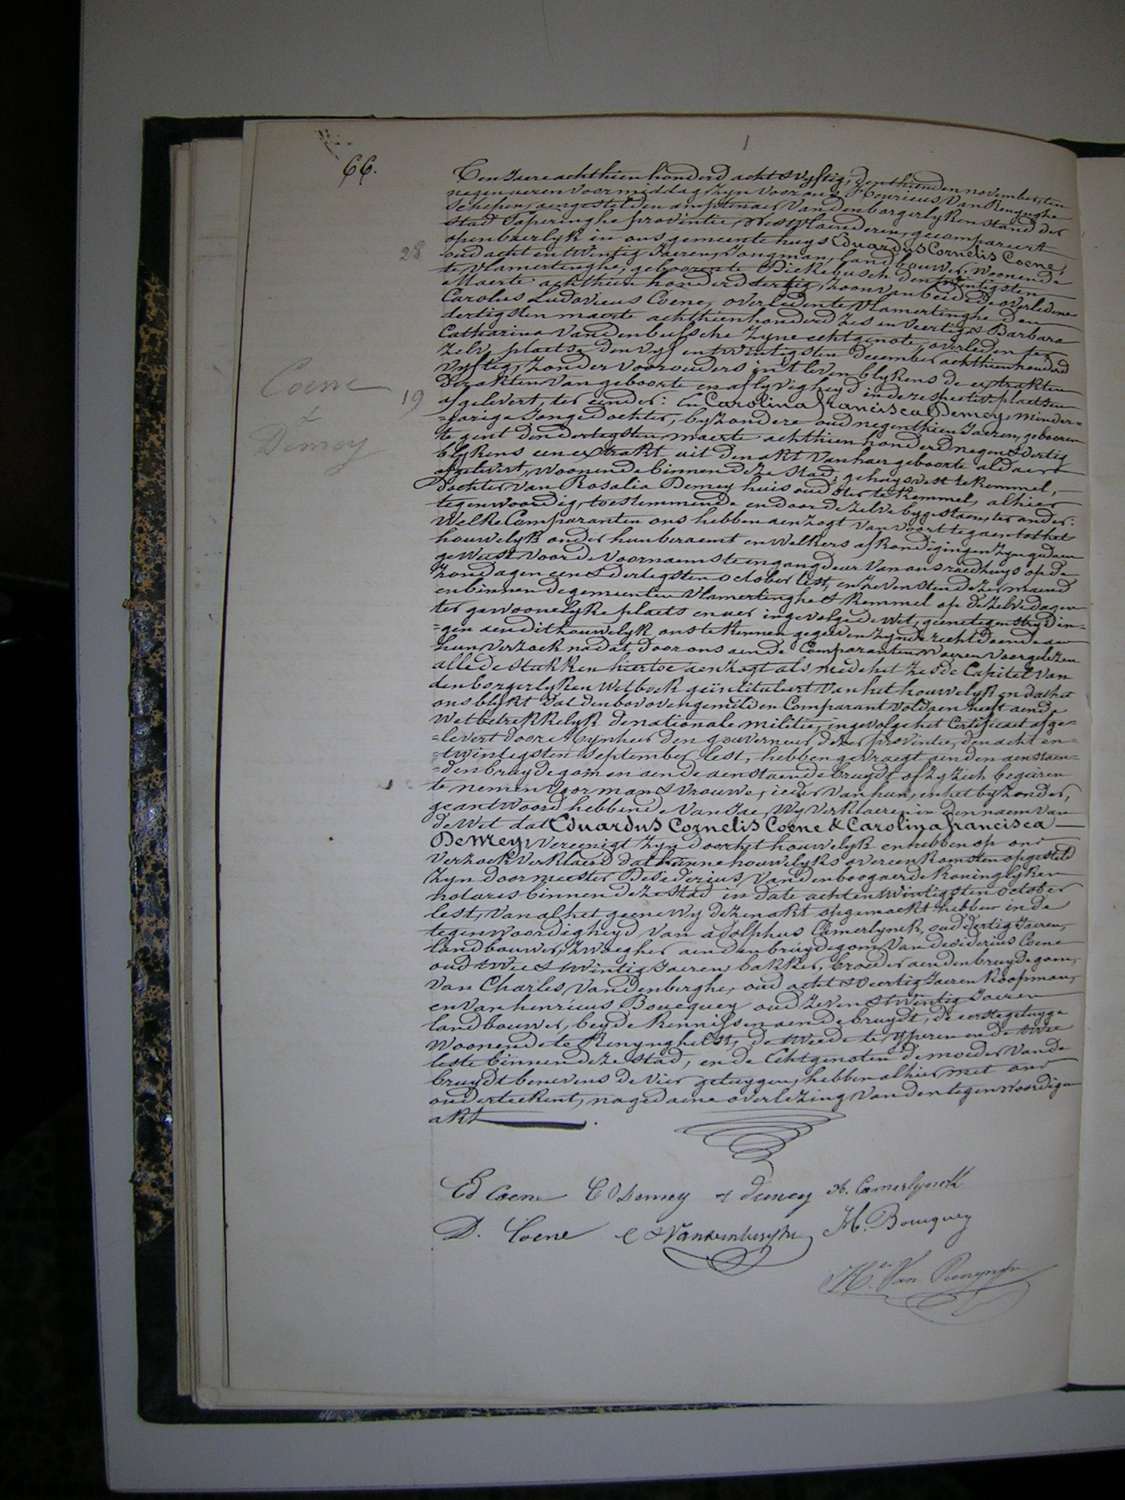 66.
Ten Jaere achthien honderd acht & vyftig, den thienden november, ten
negen ueren voormiddag zyn voor ons Henricus Van Renynghe
Schepen, aengestelden amptenaer Van den borgerlyken stand der
Stad Poperinghe provintie Westvlaenderen, gecompareert
openbaerlyk in ons gemeente huys Eduardus Cornelis Coene,
28
oud acht en twintig Jaeren, Jongman, landbouwer, woonende
te Vlamertinghe, geboren te Dickebusch den twintigsten
Maerte achthien honderd dertig, zoon van beide de overledene
Carolus Ludovicus Coene, overleden te Vlamertinghe den
dertigsten maerte achthien honderd zes en veertig & Barbara
Catharina Vandenbussche zyne echtgenote, overleden ter
zelve plaetse den vyf en twintigsten December achthien honderd
vyftig, zonder voorouders in 't leven blykens de extrakten
Coene
&
Demey
19
der akten van geboorte en aflyvigheyd in de respective plaetsen
afgelevert, ter eender: En Carolina francisca Demey, minder-
=jarige Jongedochter, byzondere oud negenthien Jaeren, geboren
te gent den dertigsten maerte achthien honderd negen & dertig
blykens een extrakt uit den akt van haer geboorte aldaer
afgelevert, woonende binnen deze Stad, gehuysvest te Kemmel,
dochter van Rosalia Demey huishoudster te Kemmel, alhier
tegenwoordig, toestemmende en door dezelve bygestaen, ter ander:
Welke Comparanten ons hebben aenzogt van voort te gaen tot het
houwelyk onder hun beraemt en welkers afkondigingen zyn gedaen
geweest voor de voornaemste ingangdeur van ons raedhuys op de
zondagen een & dertigsten october lest, en zevensten dezer maend
en binnen de gemeenten Vlamertinghe & Kemmel op de zelve dagen
ter gewoonelyke plaets en uer ingevolge de wet, geene tegenstrydin-
=gen aen dit houwelyk ons te kennen gegeven zynde recht doende aen
hun verzoek na dat, door ons aen de Comparanten waeren voorgelezen
alle de Stukken hiertoe aenzogt als mede het zesde Capitel van
den borgerlyken Wetboek geïntituleert van het houwelyk en dat het
ons blykt dat den bovengemelden Comparant voldaen heeft aen de
wet betrekkelyk de nationale militie, ingevolge het Certificaet afge-
=levert door Mynheer den gouverneur dezer provintie, den acht en-
=twintigsten September lest, hebben gevraegt aen den aenstaen-
=den bruydegom en aen de aenstaende bruydt of zy zich begeiren
te nemen voor man & vrouwe, ieder van hun, en het byzonder,
geantwoord hebbende van Jae, Wy Verklaeren in den naem van
de Wet dat Eduardus Cornelis Coene & Carolina francisca
Demey, vereenigt zyn door het houwelyk en hebben op ons
verzoek verklaerd dat hunne houwelyks overeenkomsten opgesteld
zyn door meester Desiderius Vandenboogaerde Koninglyken
notaris binnen deze Stad in date acht en twintigsten october
lest, van al het geene wy dezen akt opgemaekt hebben in de
tegenwoordigheyd van adolphus Camerlynck, oud dertig Jaeren,
landbouwer, zwaeger aen den bruydegom, van Desiderius Coene
oud twee & twintig Jaeren, bakker, broeder aen den bruydegom,
van Charles Vandenberghe, oud acht & veertig Jaeren Koopman,
en van henricus Boucquey oud zeven & twintig Jaeren
landbouwer, beyde Kennissen aen de bruydt, de eerste getuyge
woonende te Renynghelst, de tweede te Yperen en de twee
leste binnen deze stad, en de Echtgenoten de moeder van de
bruydt benevens de vier getuygen, hebben alhier met ons
onderteekent, na gedaene overlezing van den tegenwoordigen
akt.
Ed Coene C Demey r demey A. Camerlynck
D. Coene C Vandenberghe H. Boucquey
He. Van Renynghe